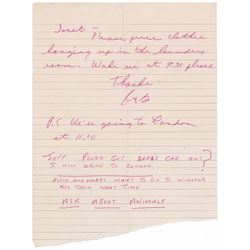 Janet -
Please press clothes
hanging up in the laundry
room. Wake me at 9:30 please
Thanks
P.S We're going to London
at 11:30
JEFF PLEASE GET BARB'S CAR OUT?
I WILL DRIVE TO LONDON
ROSIE AND HARRY WANT TO GO TO WINDSOR
ASK THEM WHAT TIME
ASK ABOUT ANIMALS